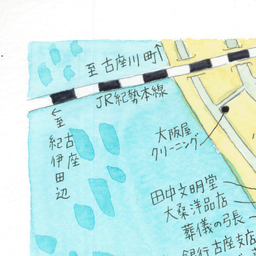 至古座川町↑
JR紀勢本線
←至紀伊田辺
古座
大阪屋
クリーニング
田中文明堂
大桑洋品店
葬儀の弓長
銀行古座支店